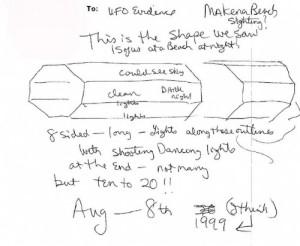 To: UFO Evidence
Makena Beach
Sighting!
This is the shape we saw
15 of us at a Beach at night!
could see sky
clean
Dark
night
lights
lights
8 sided — long — lights along those outlines
with shooting Dancing lights
at the End — not many
but ten to 20 !!
Aug — 8th
1999
(I think)